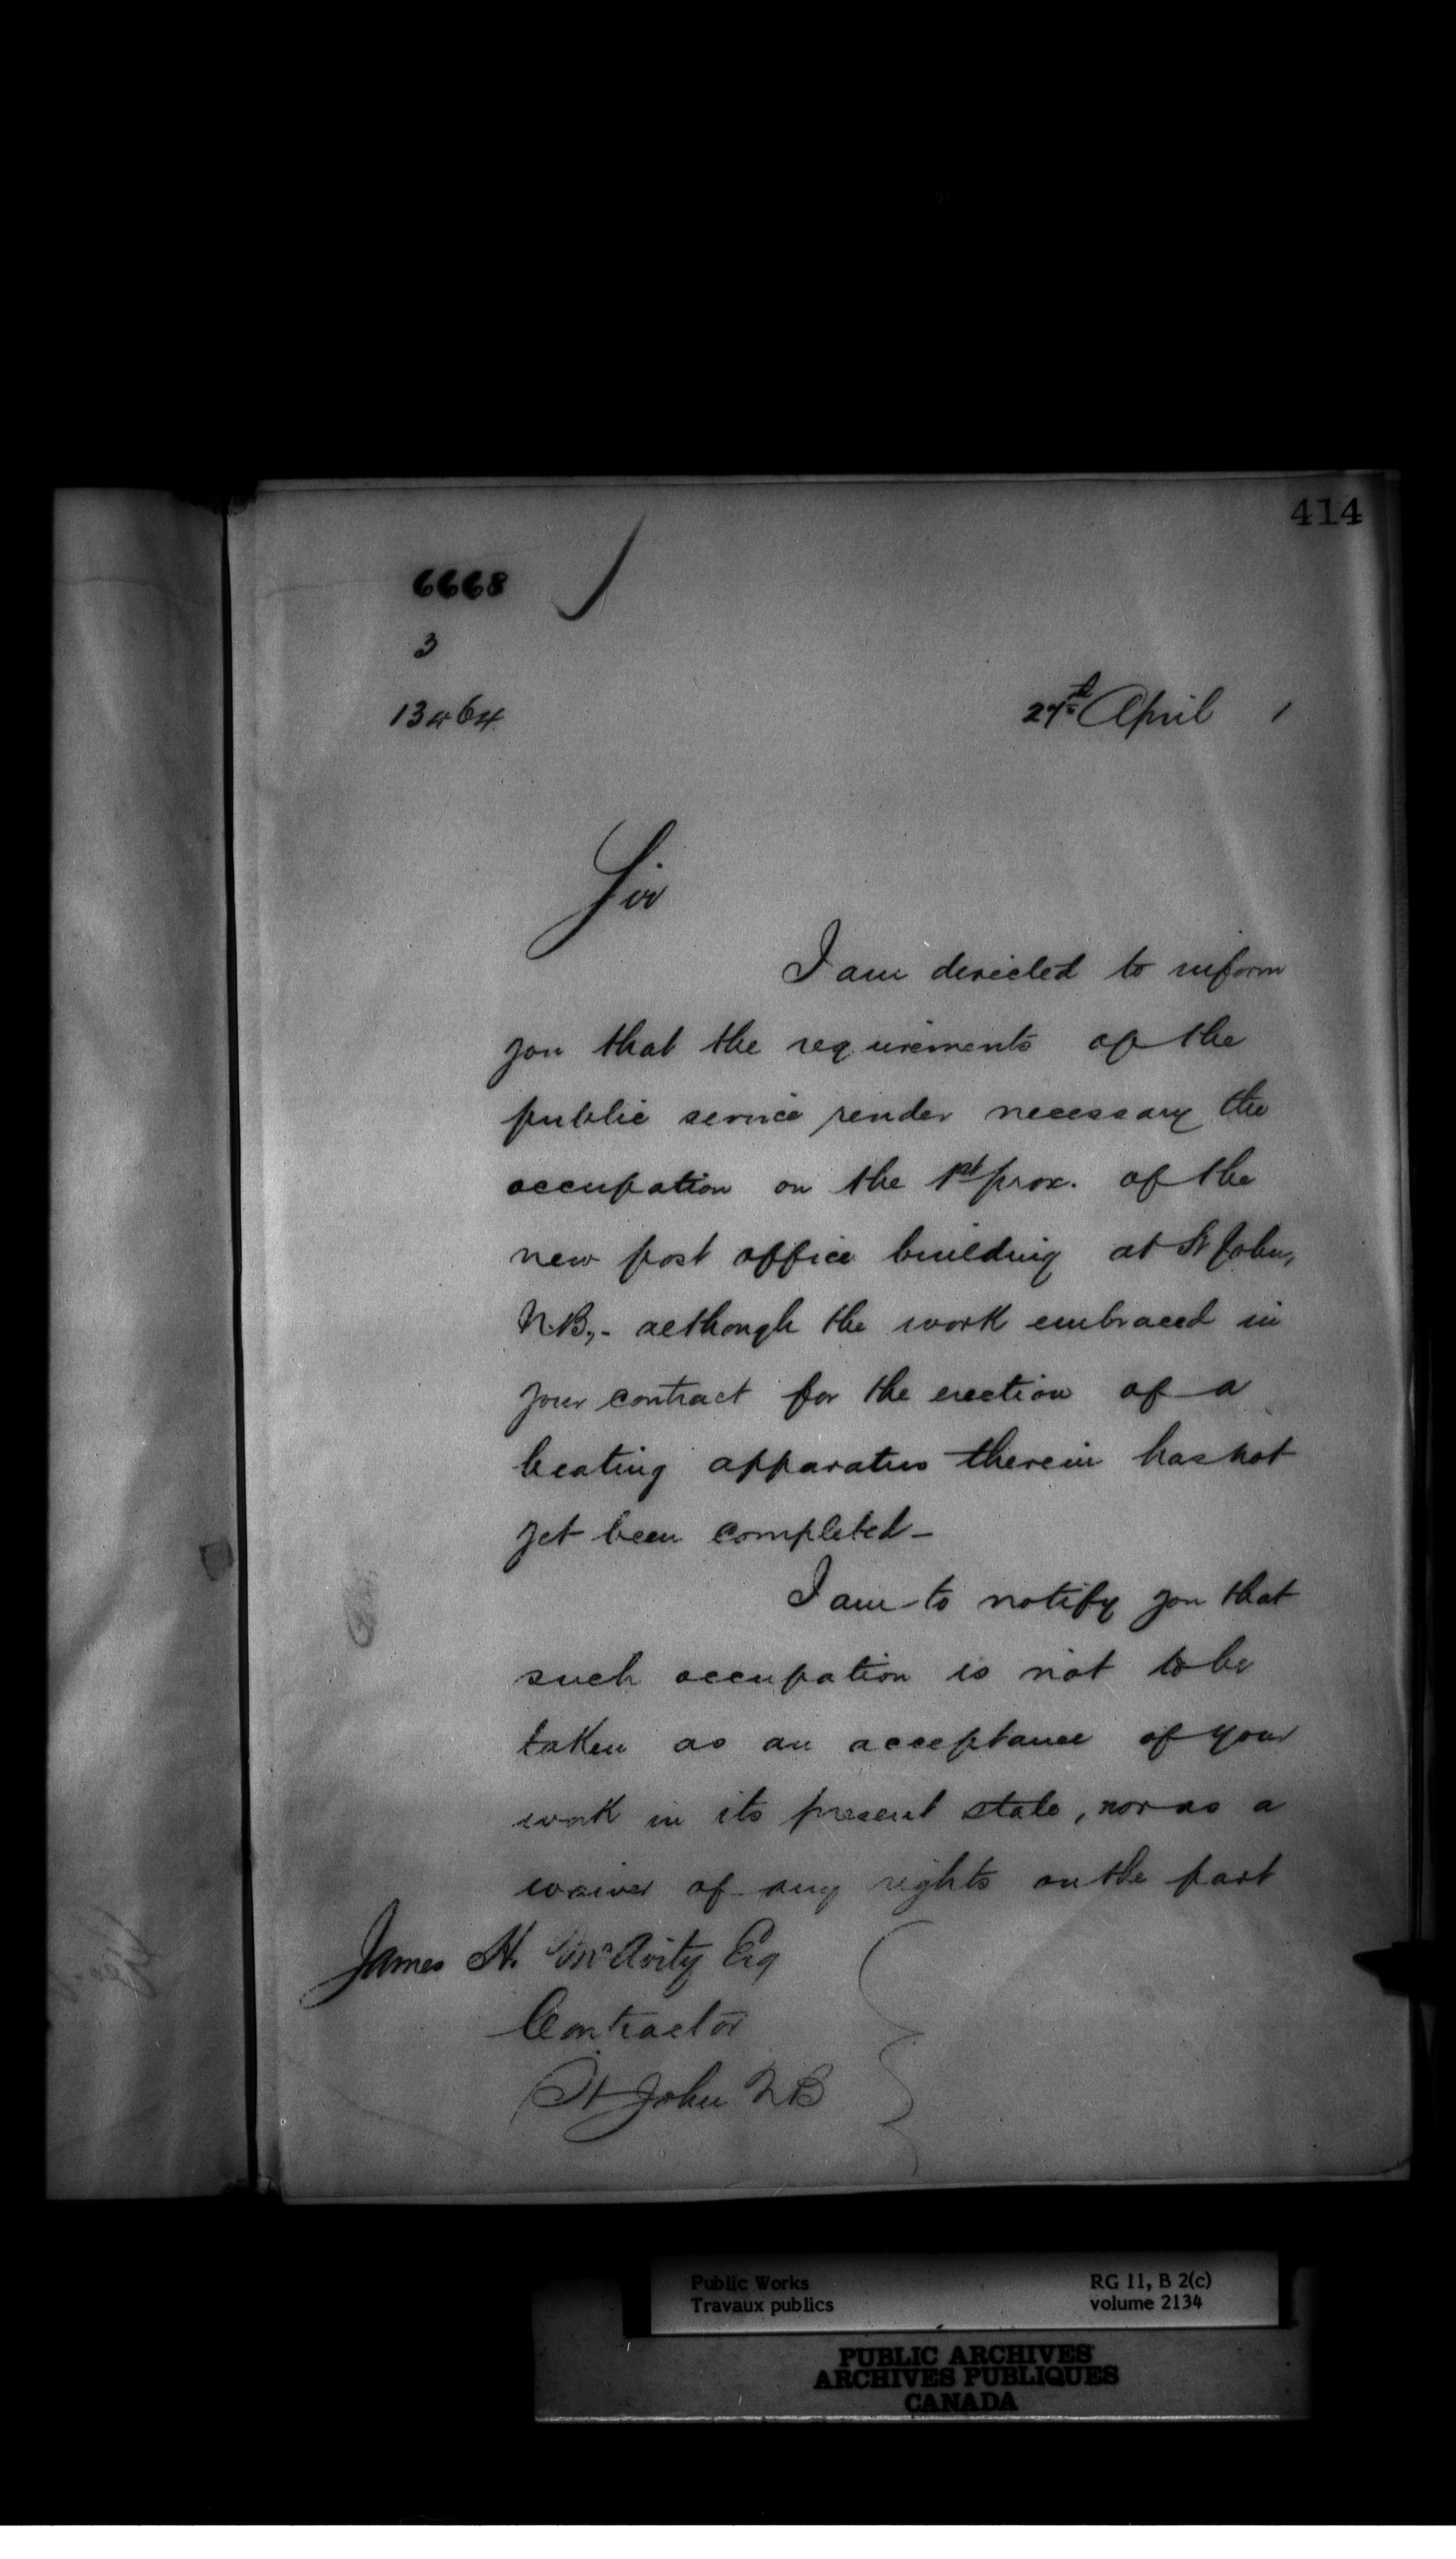 414
6668
3
13464
27th April 1
Sir
I am directed to inform
you that the requirements of the
public service render necessary the
occupation on the 1st prox. of the
new post office building at St John,
N.B,- although the work embraced in
your contract for the erection of a
heating apparatus therein has not
yet been completed-
I am to notify you that
such occupation is not to be
taken as an acceptance of your
work in its present state, nor as a
waiver of any rights on the part
James H. McAvity Esq
Contractor
St John NB
Public Works
Travaux publics
RG 11, B 2(c)
volume 2134
PUBLIC ARCHIVES
ARCHIVES PUBLIQUES
CANADA